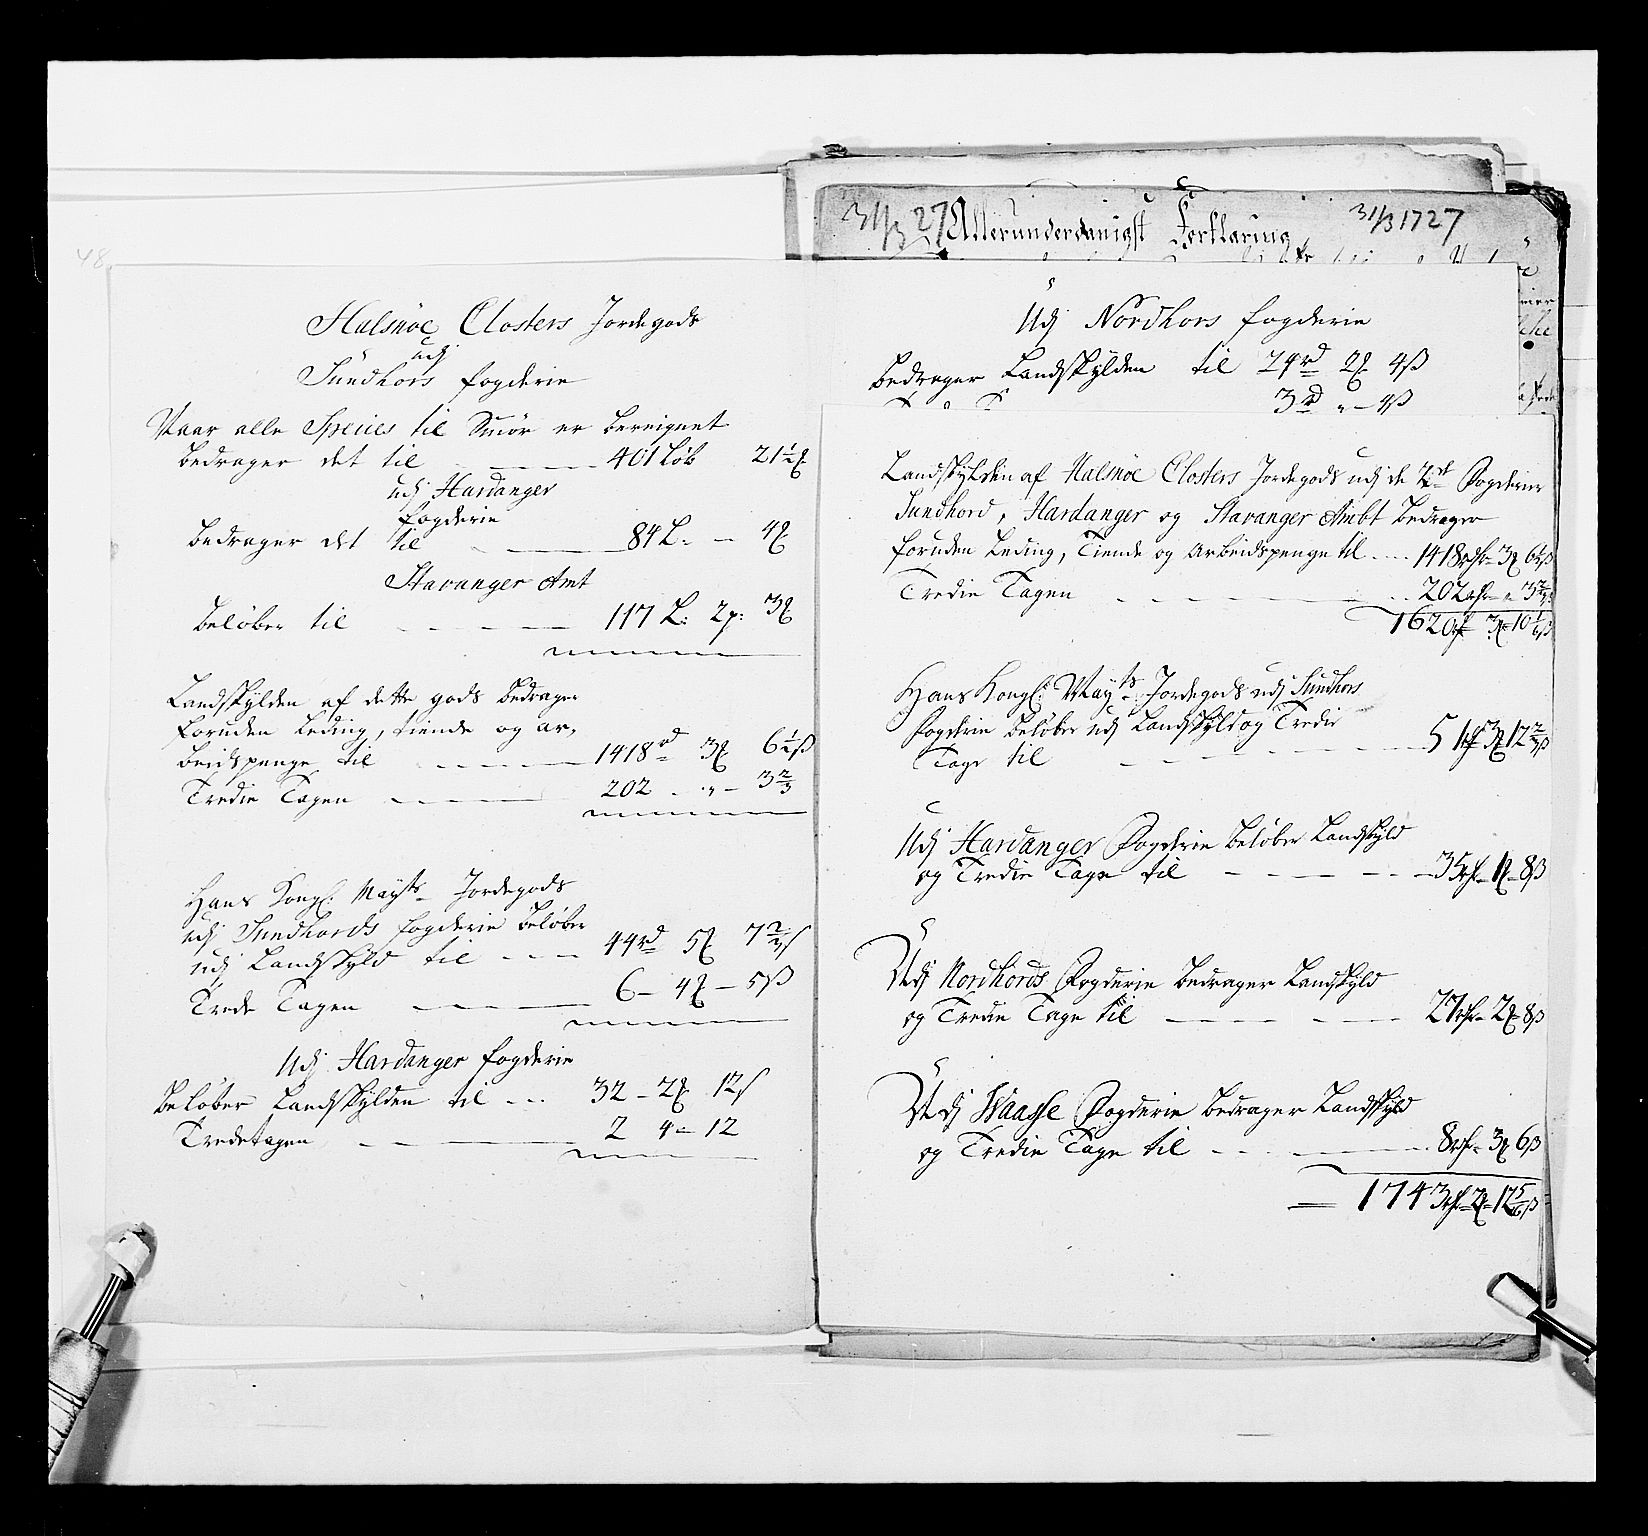 48
Halsnöe Closters Jordegods
udj
Sundhors fogderie
Naar alle Species til Smör er bereignet
bedrager det til - - - 401 Løb 21½ ℔
udj Hardanger
fogderie
bedrager det til - - 84 L: - 4 ℔
Stavanger Amt
beløber til - - - - 117 L: 2p: 3 ℔
Landskylden af dette gods bedrager
foruden Leding, tiende og ar,
beidspenge til - - - - 1418 rd 3 ℔ 6½ ß
Tredie Tagen - - - 202 - " - 3⅔
Hans Kongl: Mayts Jordegods
udj Sundhords fogderie beløber
udj Landskyld til - - - 44 rd 5 ℔ 7⅔ s
Trede Tagen - - - 6 - 4 ℔ - 5 ß
Udj Hardanger fogderie
beløber Landskylden til - - - 32 - 2 ℔ 12 s
Tredetagen - - - 2 4 - 12
31/3 27 Allerunderdanigst Forklaring 31/3 1727
Udj Nordhors fogderie
bedrager Landskylden til 24 rd 2 ℔ 4 ß
3 rd " - 4 ß
Landskylden af Halsnöe Closters Jordegods udj de Fogderier
Sundhord, Hardanger og Stavanger Ambt bedrager
foruden Leding, Tiende og Arbeidspenge til - - - 1418 rdr - 3 ℔ 6½ ß
Tredie Tagen - - - - - 202 rdr - " - 3⅔ ß
1620 rdr 3 ℔ - 10 1/6 ß
Hans Kongl: Mayts Jordegods udj Sundhors
Fogderie beløber udj Landskyld og Tredie
Tage til - - - - 51 rdr 3 ℔ 12⅔ ß
Udj Hardanger Fogderie beløber Landskyld
og Tredie Tage til - - - - 35 rdr - 1 ℔ - 8 ß
Udj Nordhords Fogderie bedrager Landskyld
og Tredie Tage til - - - - 27 rdr - 2 ℔ - 8 ß
Udj Waagse Fogderie bedrager Landskyld
og Tredie Tage til - - - - 8 rdr - 3 ℔ 6 ß
1743 rdr - 2 ℔ - 12 5/6 ß